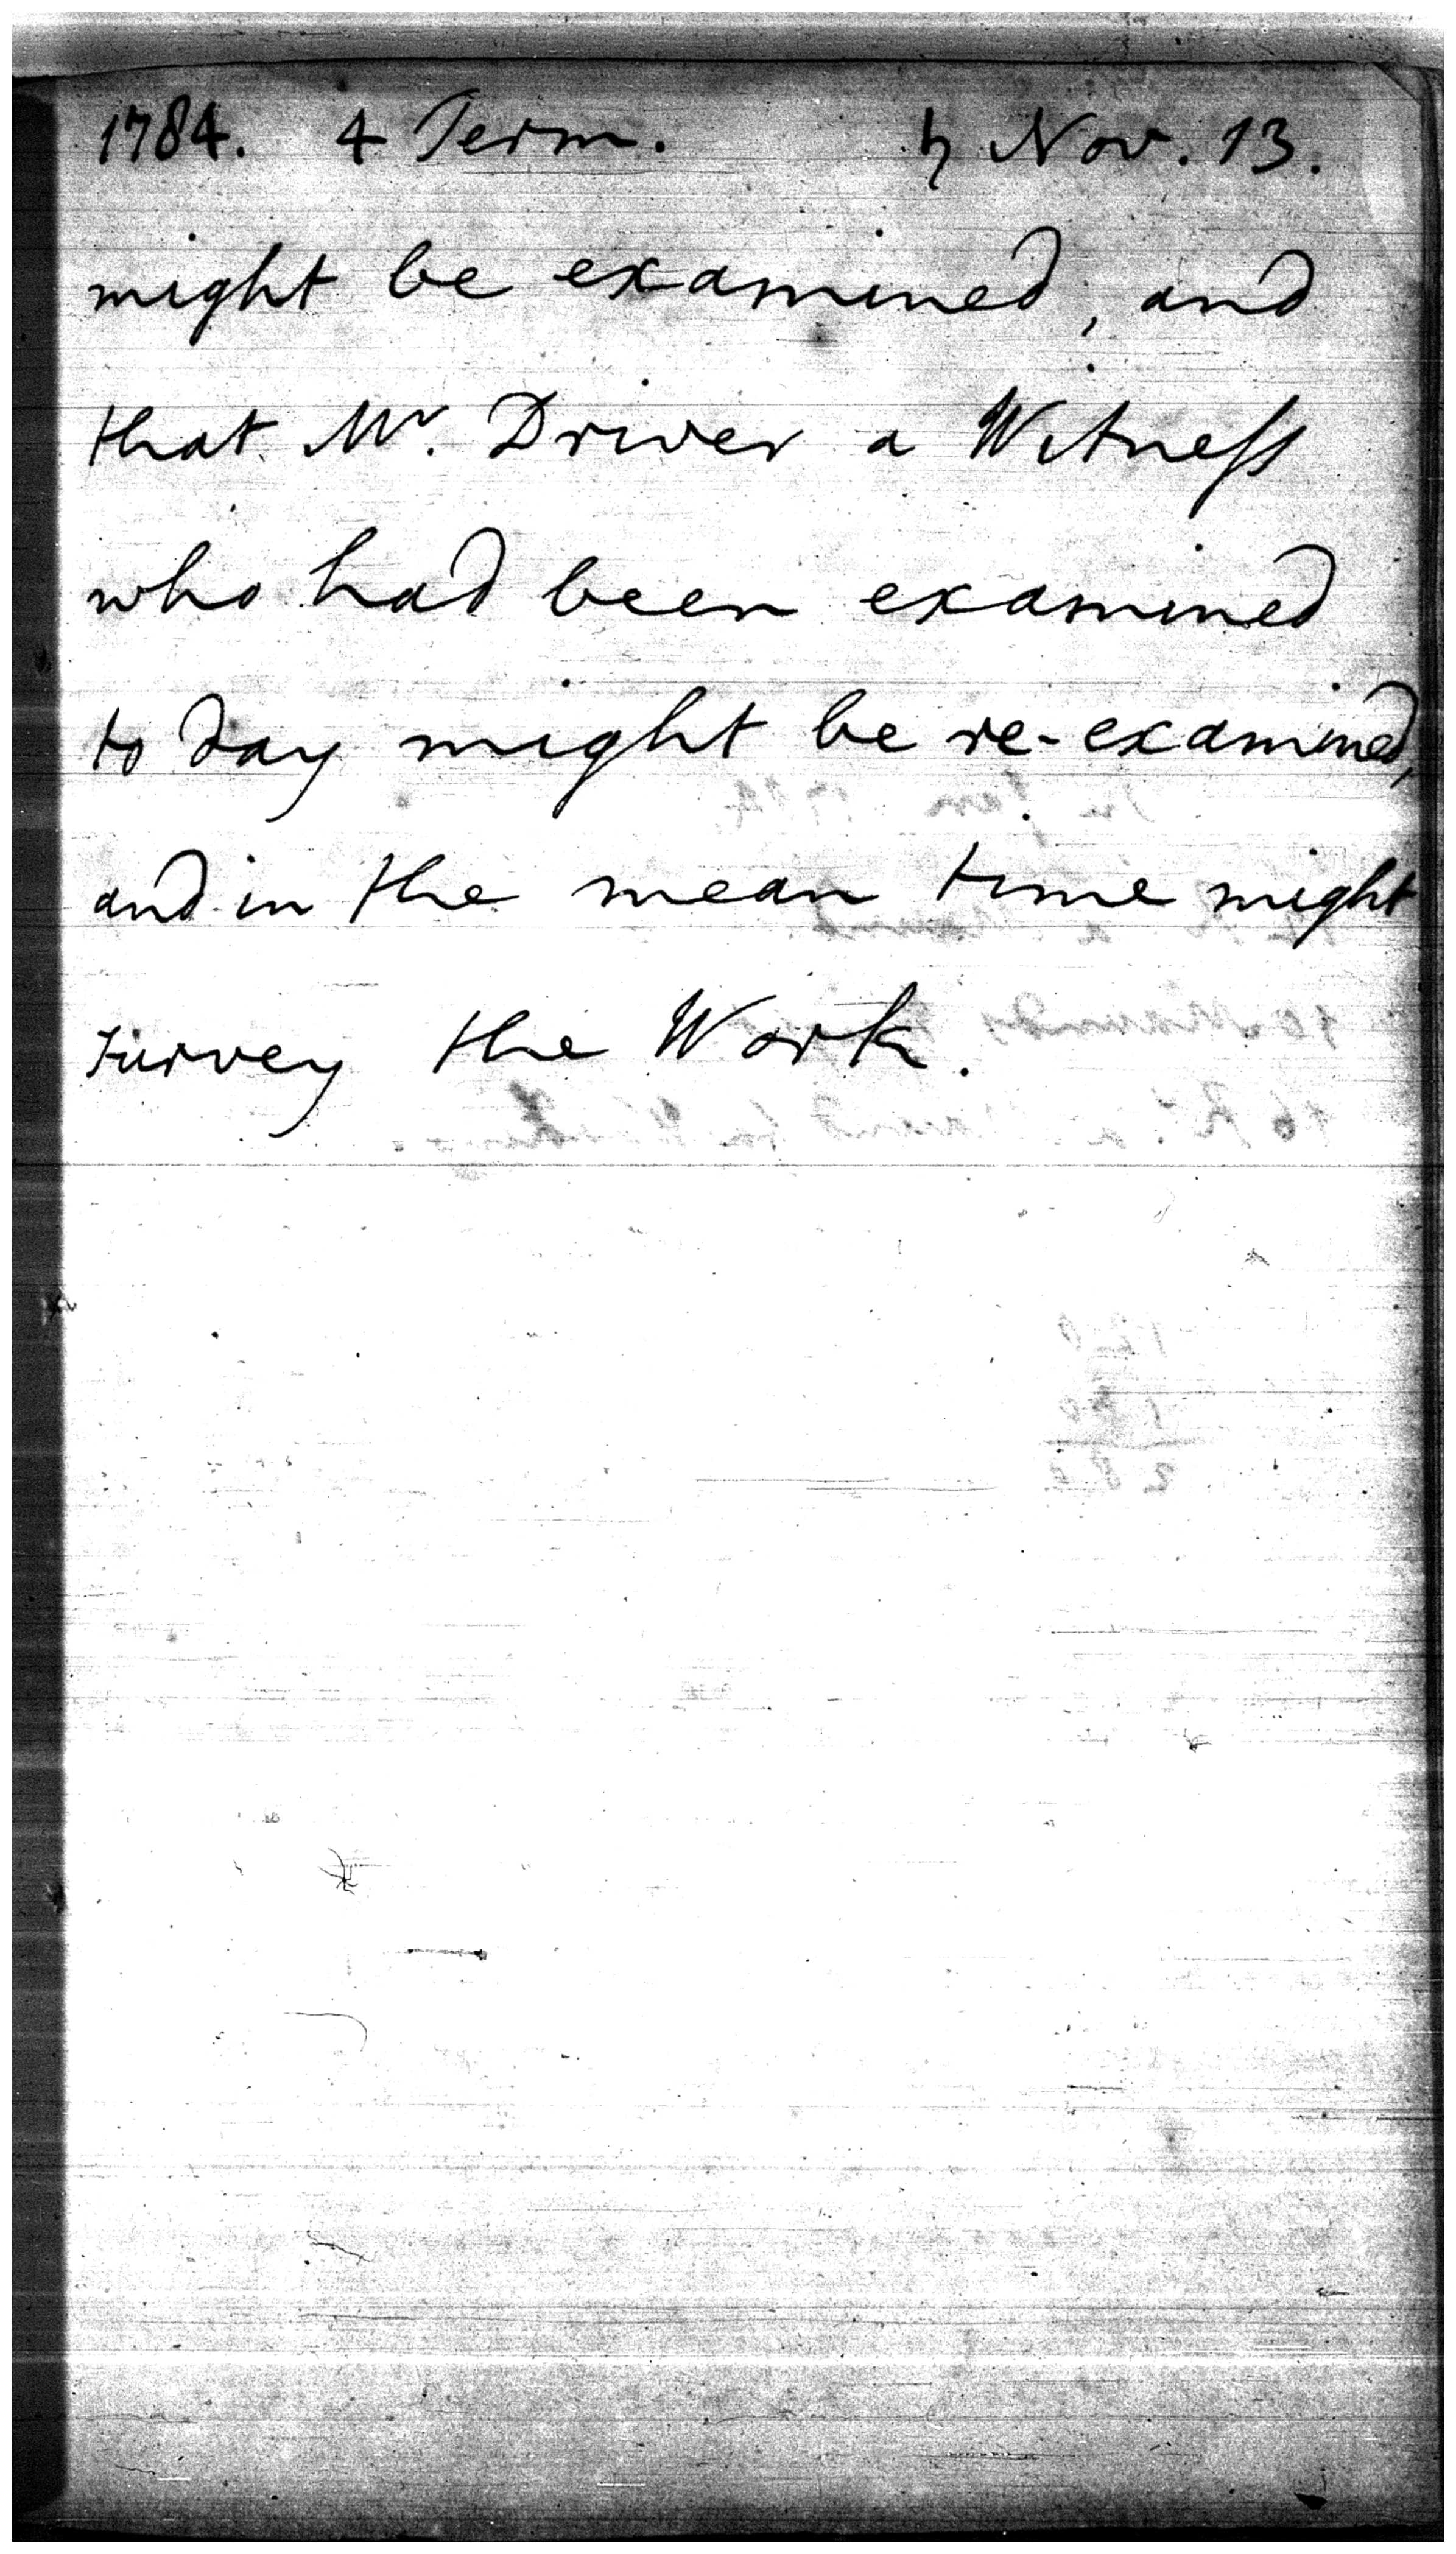 1784. 4 Term. ♄ Nov. 13.
might be examined, and
that Mr. Driver a Witneſs
who had been examined
to day might be re-examined,
and in the mean time might
survey the Work.